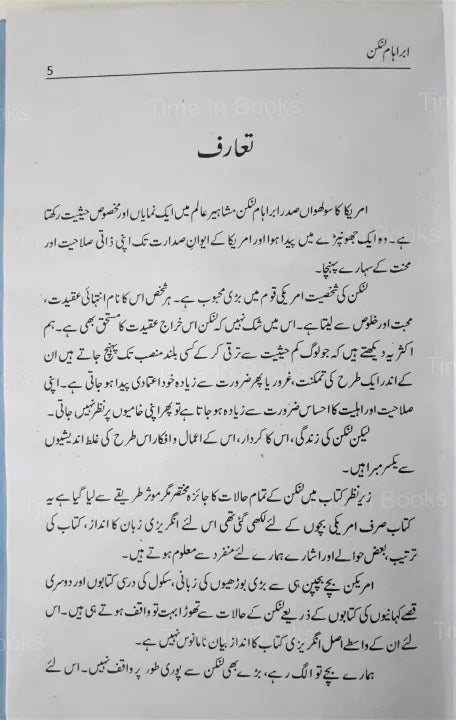 ابراہام لنکن
5
تعارف
امریکا کا سولھواں صدر ابراہام لنکن مشاہیر عالم میں ایک نمایاں اور مخصوص حیثیت رکھتا
ہے۔ وہ ایک جھونپڑے میں پیدا ہوا اور امریکا کے ایوانِ صدارت تک اپنی ذاتی صلاحیت اور
محنت کے سہارے پہنچا۔
لنکن کی شخصیت امریکی قوم میں بڑی محبوب ہے۔ ہر شخص اس کا نام انتہائی عقیدت،
محبت اور خلوص سے لیتا ہے۔ اس میں شک نہیں کہ لنکن اس خراج عقیدت کا مستحق بھی ہے۔ ہم
اکثر یہ دیکھتے ہیں کہ جو لوگ کم حیثیت سے ترقی کر کے کسی بلند منصب تک پہنچ جاتے ہیں ان
کے اندر ایک طرح کی تمکنت، غرور یا پھر ضرورت سے زیادہ خود اعتمادی پیدا ہو جاتی ہے۔ اپنی
صلاحیت اور اہلیت کا احساس ضرورت سے زیادہ ہو جاتا ہے تو پھر اپنی خامیوں پر نظر نہیں جاتی۔
لیکن لنکن کی زندگی، اس کا کردار، اس کے اعمال و افکار اس طرح کی غلط اندیشیوں
سے یکسر مبرا ہیں۔
زیر نظر کتاب میں لنکن کے تمام حالات کا جائزہ مختصر مگر موثر طریقے سے لیا گیا ہے یہ
کتاب صرف امریکی بچوں کے لئے لکھی گئی تھی اس لئے انگریزی زبان کا انداز، کتاب کی
ترتیب، بعض حوالے اور اشارے ہمارے لئے منفرد سے معلوم ہوتے ہیں۔
امریکن بچے بچپن ہی سے بڑی بوڑھیوں کی زبانی، سکول کی درسی کتابوں اور دوسری
قصے کہانیوں کی کتابوں کے ذریعے لنکن کے حالات سے تھوڑا بہت تو واقف ہوتے ہی ہیں۔ اس
لئے ان کے واسطے اصل انگریزی کتاب کا انداز بیان نامانوس نہیں ہے۔
ہمارے بچے تو الگ رہے، بڑے بھی لنکن سے پوری طور پر واقف نہیں۔ اس لئے
Time In Books